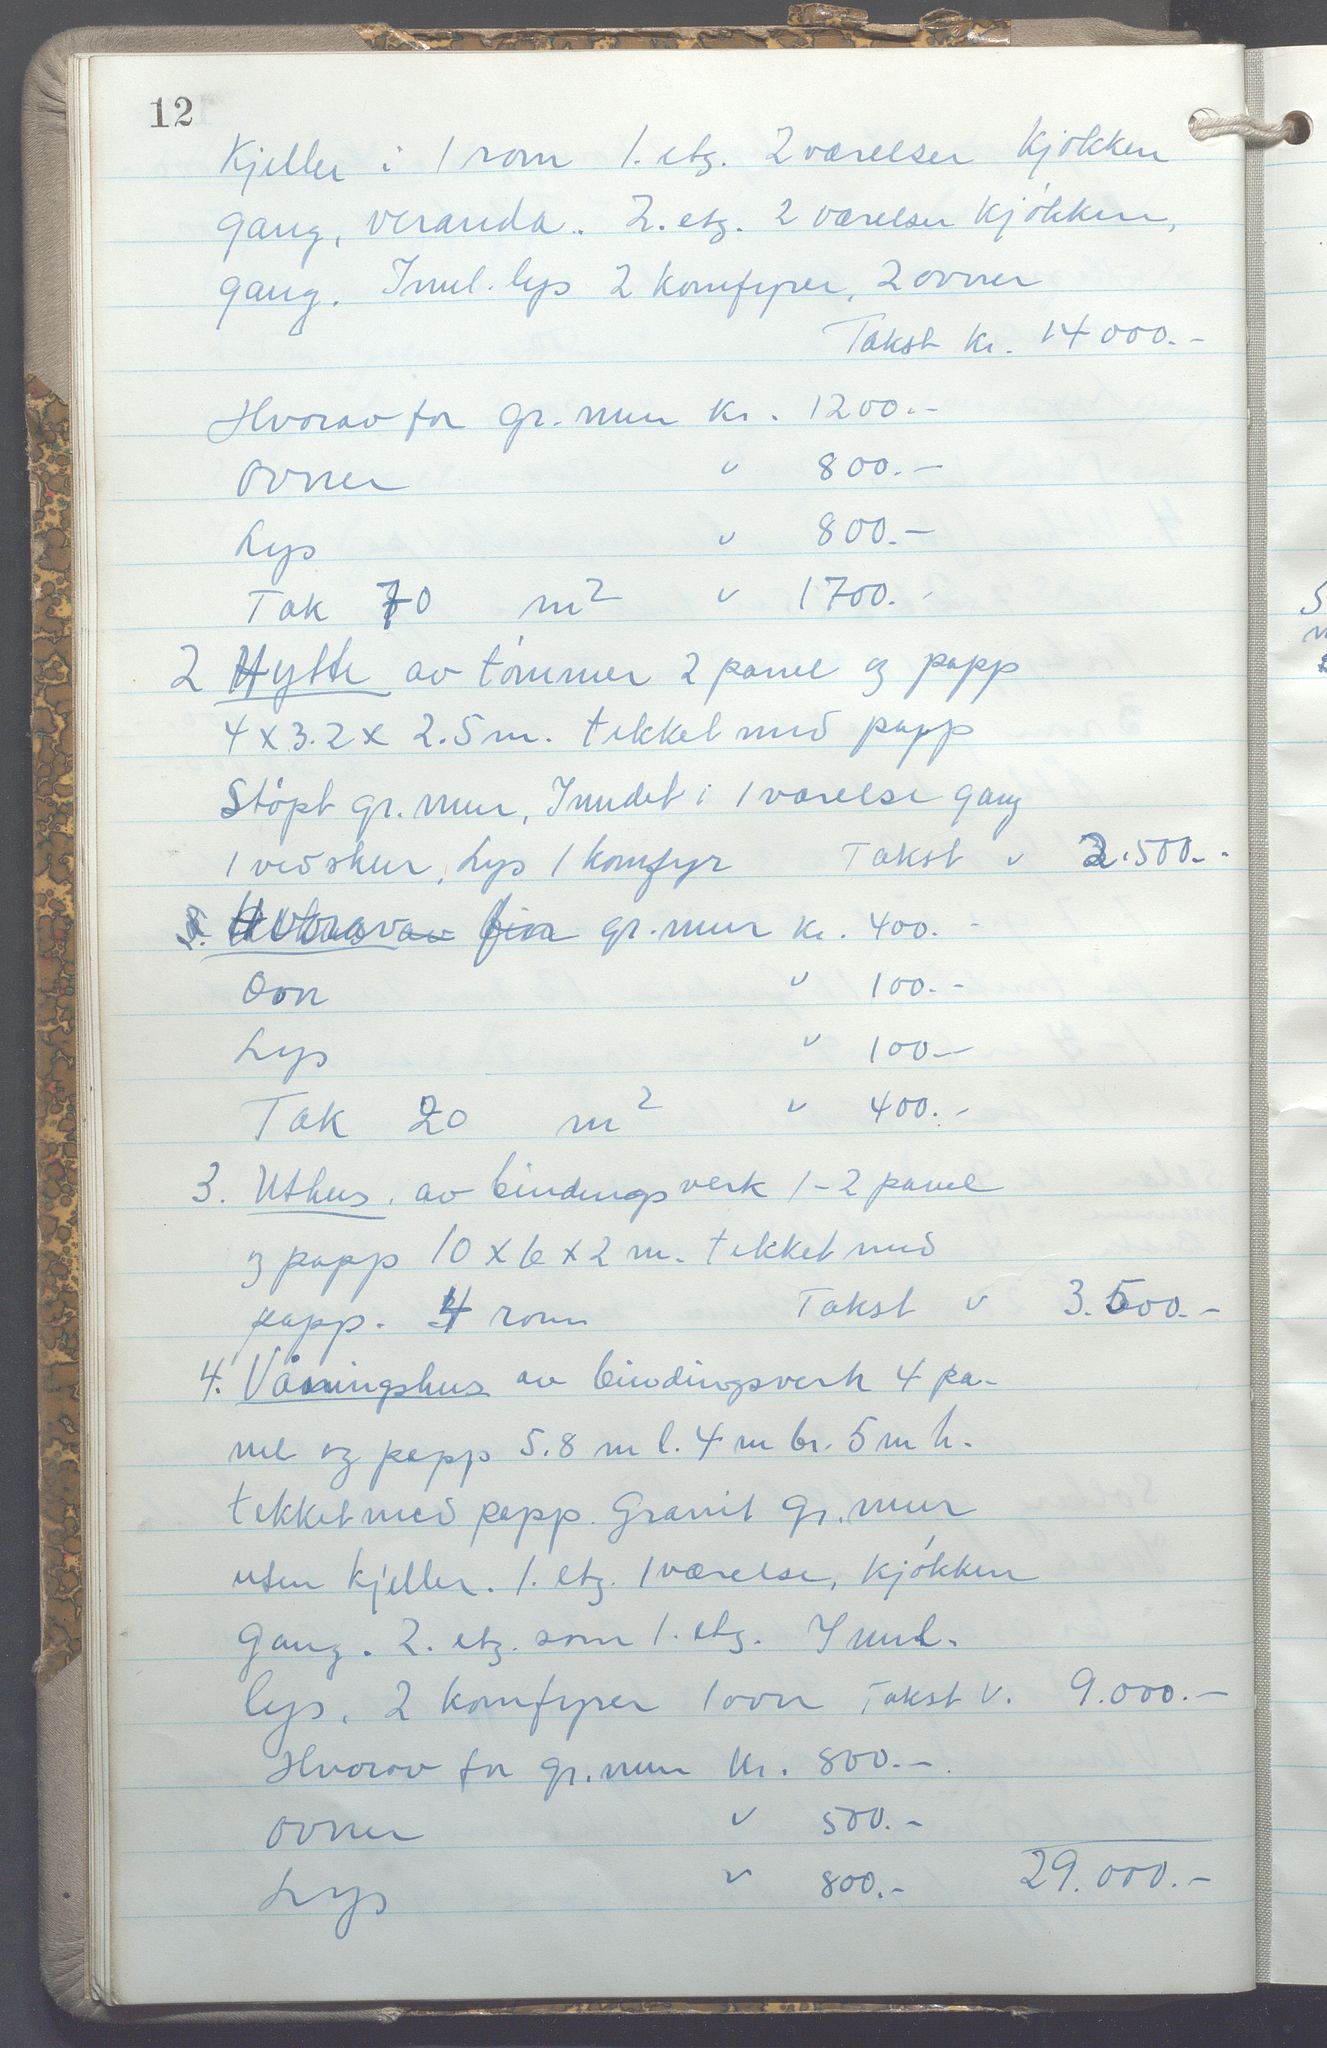 12
Kjeller i 1 rom 1. etg. 2 værelser kjøkken
gang, veranda.. 2. etg. 2 værelser kjøkken,
gang. Innl. lys 2 komfyrer, 2 ovner
Takst kr. 14000.-
Hvorav for gr. mur kr. 1200.-
Ovner " 800.-
Lys " 800.-
Tak 70 m2 " 1700.-
2 Hytte av tømmer 2 panel og papp
4 x 3.2 x 2.5 m. tekket med papp
Støpt gr. mur, Inndet i 1 værelse gang
1 vedskur, Lys 1 komfyr Takst " 2.500.-
Hvorav for gr. mur kr. 400.-
Ovn " 100.-
Lys " 100.-
Tak 20 m2 " 400.-
3. Uthus. av bindingsverk 1-2 panel
og papp 10 x 6 x 2 m. tekket med
papp. 4 rom Takst " 3.500.-
4. Våningshus av bindingsverk 4 pa-
nel og papp 5.8 m l. 4 m br. 5 m h.
tekket med papp. Granit gr. mur
uten kjeller. 1. etg. 1 værelse, kjøkken
gang. 2. etg. som 1. etg. Innl.
lys, 2 komfyrer 1 ovn Takst ". 9.000.-
Hvorav for gr. mur kr. 800.-
Ovner " 500.-
Lys " 800.- 29.000.-